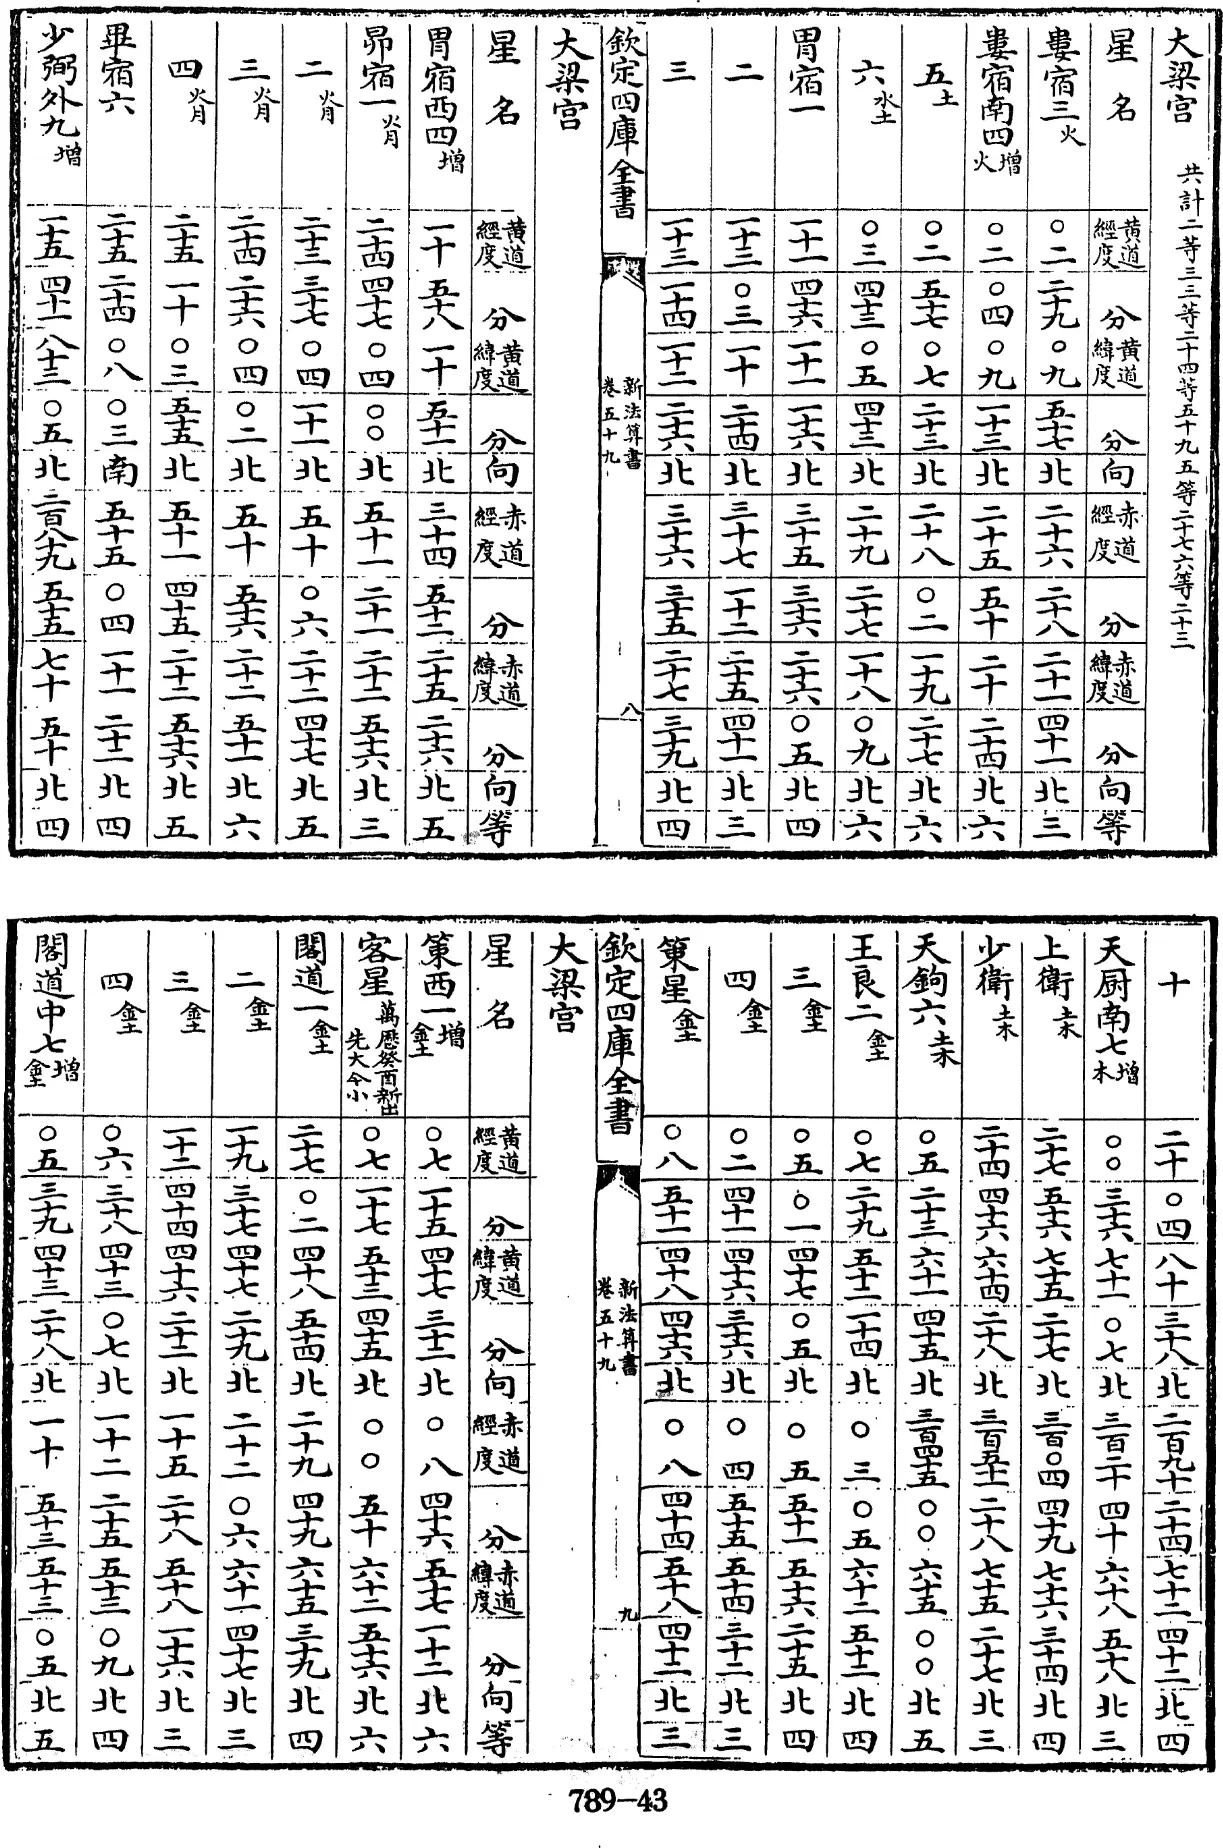 大梁宮 共計二等三三等二十四等五十九五等二十七六等二十三
星名 黃道經度 分 黃道緯度 分 向 赤道經度 分 赤道緯度 分 向 等
婁宿三火 〇二 二十九 〇九 五十七 北 二十六 二十八 二十一 四十一 北 三
婁宿南四增火 〇二 〇四 〇九 一十三 北 二十五 五十 二十 二十四 北 六
五土 〇二 五十七 〇七 二十三 北 二十八 〇二 一十九 二十七 北 六
六水土 〇三 四十三 〇五 四十三 北 二十九 二十七 一十八 〇九 北 六
胃宿一 一十一 四十六 一十一 一十六 北 三十五 三十六 二十六 〇五 北 四
二 一十三 〇三 一十 二十四 北 三十七 一十二 二十五 四十一 北 三
三 一十三 一十四 一十二 二十六 北 三十六 三十五 二十七 三十九 北 四
欽定四庫全書 新法算書 卷五十九 八
大梁宮
星名 黃道經度 分 黃道緯度 分 向 赤道經度 分 赤道緯度 分 向 等
胃宿西四增 一十 五十八 一十 五十一 北 三十四 五十二 二十五 二十六 北 五
昴宿一火月 二十四 四十七 〇四 〇〇 北 五十一 二十一 二十二 五十六 北 三
二火月 二十三 三十七 〇四 一十一 北 五十 〇六 二十二 四十七 北 五
三火月 二十四 二十六 〇四 〇二 北 五十 五十六 二十二 五十一 北 六
四火月 二十五 一十 〇三 五十五 北 五十一 四十五 二十二 五十六 北 五
畢宿六 二十五 二十四 〇八 〇三 南 五十五 〇四 一十一 二十一 北 四
少弼外九增 一十五 四十一 八十三 〇五 北 二百八十九 五十五 七十 五十 北 四
十 二十 〇四 八十 三十八 北 二百九十 二十四 七十二 四十二 北 四
天厨南七增木 〇〇 三十六 七十一 〇七 北 三百二十 四十 六十八 五十八 北 三
上衛土木 二十七 五十六 七十五 二十七 北 三百〇四 四十九 七十六 三十四 北 四
少衛土木 二十四 四十六 六十四 二十八 北 三百五十一 二十八 七十五 二十七 北 三
天鉤六土木 〇五 二十三 六十一 四十五 北 三百四十五 〇〇 六十五 〇〇 北 五
王良二金土 〇七 二十九 五十二 一十四 北 〇三 〇五 六十二 五十二 北 四
三金土 〇五 〇一 四十七 〇五 北 〇五 五十一 五十六 二十五 北 四
四金土 〇二 四十一 四十六 三十六 北 〇四 五十五 五十四 三十二 北 三
策星金土 〇八 五十一 四十八 四十六 北 〇八 四十四 五十八 四十二 北 三
欽定四庫全書 新法算書 卷五十九 九
大梁宮
星名 黃道經度 分 黃道緯度 分 向 赤道經度 分 赤道緯度 分 向 等
策西一增金土 〇七 一十五 四十七 三十一 北 〇八 四十六 五十七 一十二 北 六
客星萬歷癸酉新出先大今小 〇七 一十七 五十三 四十五 北 〇〇 五十 六十二 五十六 北 六
閣道一金土 二十七 〇二 四十八 五十四 北 二十九 四十九 六十五 三十九 北 四
二金土 一十九 三十七 四十七 二十九 北 二十二 〇六 六十一 四十七 北 三
三金土 一十二 四十四 四十六 二十二 北 一十五 二十八 五十八 一十六 北 三
四金土 〇六 三十八 四十三 〇七 北 一十二 二十五 五十三 〇九 北 四
閣道中七增金土 〇五 三十九 四十三 二十八 北 一十 五十三 五十三 〇五 北 五
789-43